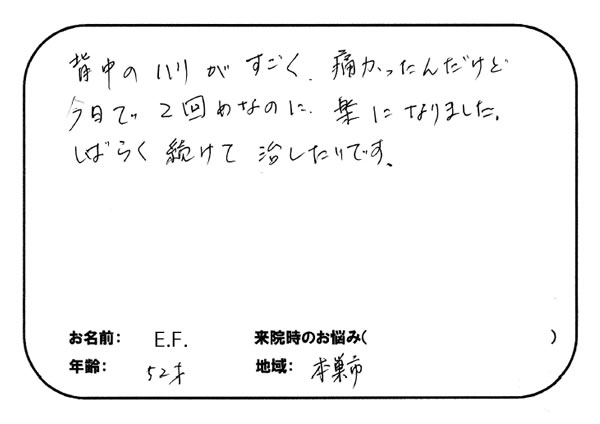 背中のハリがすごく、痛かったんだけど
今日で2回めなのに、楽になりました。
しばらく続けて治したいです。
お名前： E.F. 来院時のお悩み( )
年齢： 52才 地域： 本巣市